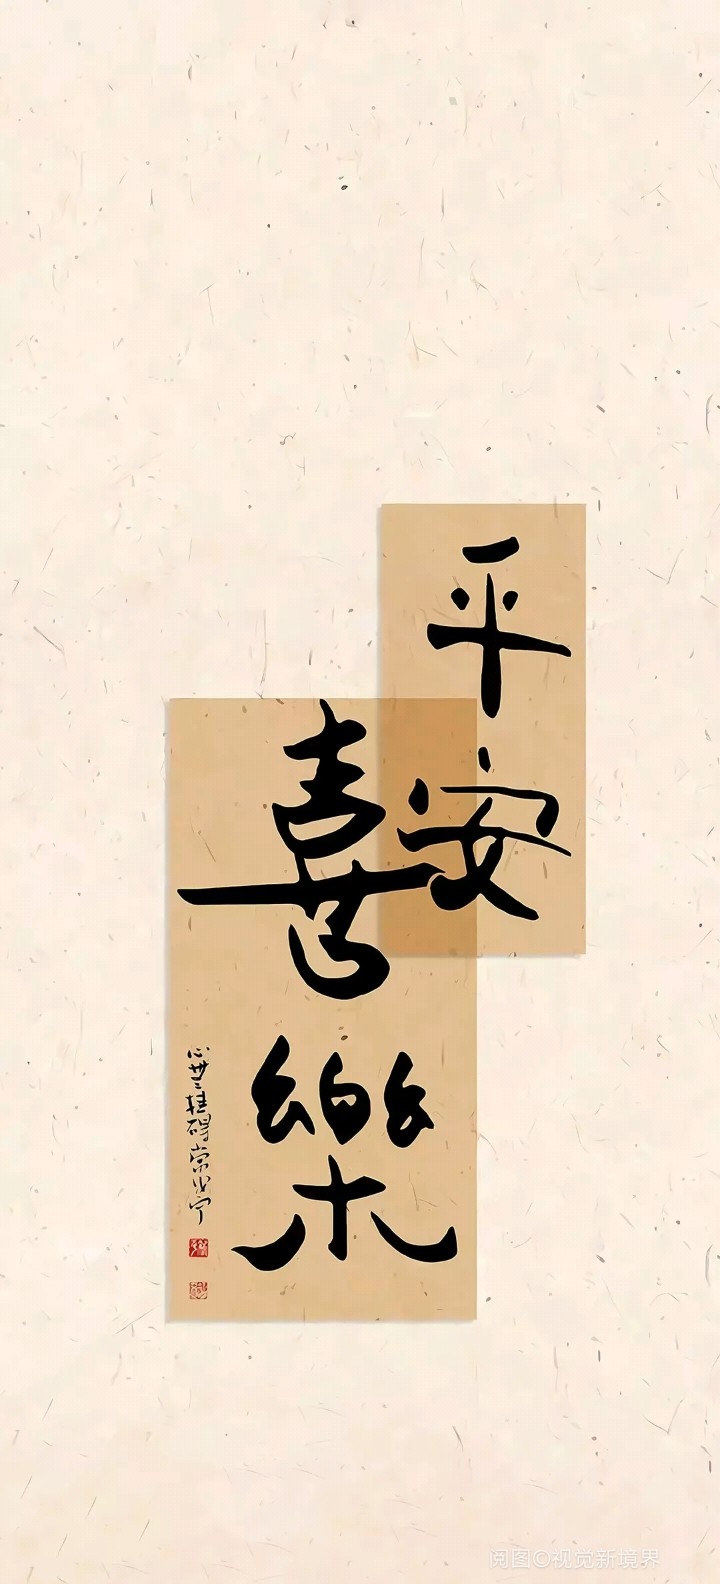 平安
喜樂
心無罣礙常安寧
阅图©视觉新境界